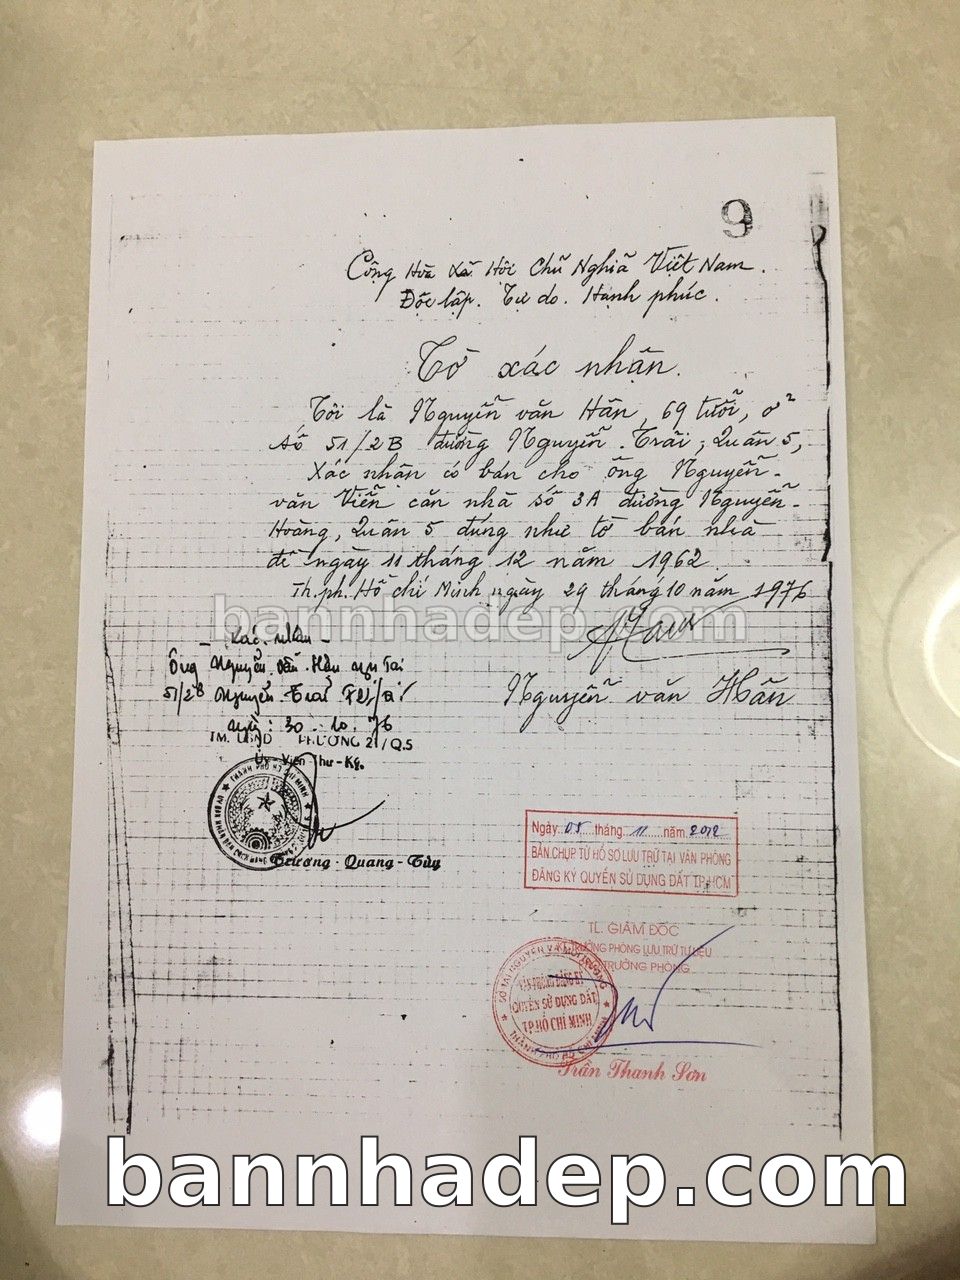 9
Cộng Hòa Xã Hội Chủ Nghĩa Việt Nam.
Độc lập. Tự do. Hạnh phúc.
Tờ xác nhận.
Tôi là Nguyễn văn Hân, 69 tuổi, ở
số 51/2B đường Nguyễn Trãi, Quân 5,
Xác nhận có bán cho ông Nguyễn-
văn Viễn căn nhà số 3A đường Nguyễn-
Hoàng, Quân 5 đúng như tờ bán nhà
đề ngày 11 tháng 12 năm 1962.
Th.ph. Hồ chí Minh ngày 29 tháng 10 năm 1976
bannhadep.com
Nguyễn văn Hân
- Xác nhân -
Ông Nguyễn Văn Hân
51/2B Nguyễn Trãi
ngày: 30. 10. 76
TM. UBND PHƯỜNG 21/Q.5
Ủy Viên Thư-Ký.
THÀNH PHỐ HỒ CHÍ MINH
Trương-Quang-Túy
Ngày 05 tháng 11 năm 2012
BẢN CHỤP TỪ HỒ SƠ LƯU TRỮ TẠI VĂN PHÒNG
ĐĂNG KÝ QUYỀN SỬ DỤNG ĐẤT TP.HCM
TL. GIÁM ĐỐC
KT.TRƯỞNG PHÒNG LƯU TRỮ TƯ LIỆU
TRƯỞNG PHÒNG
SỞ TÀI NGUYÊN VÀ MÔI TRƯỜNG
VĂN PHÒNG ĐĂNG KÝ
QUYỀN SỬ DỤNG ĐẤT
TP.HỒ CHÍ MINH
THÀNH PHỐ HỒ CHÍ MINH
Trần Thanh Sơn
bannhadep.com